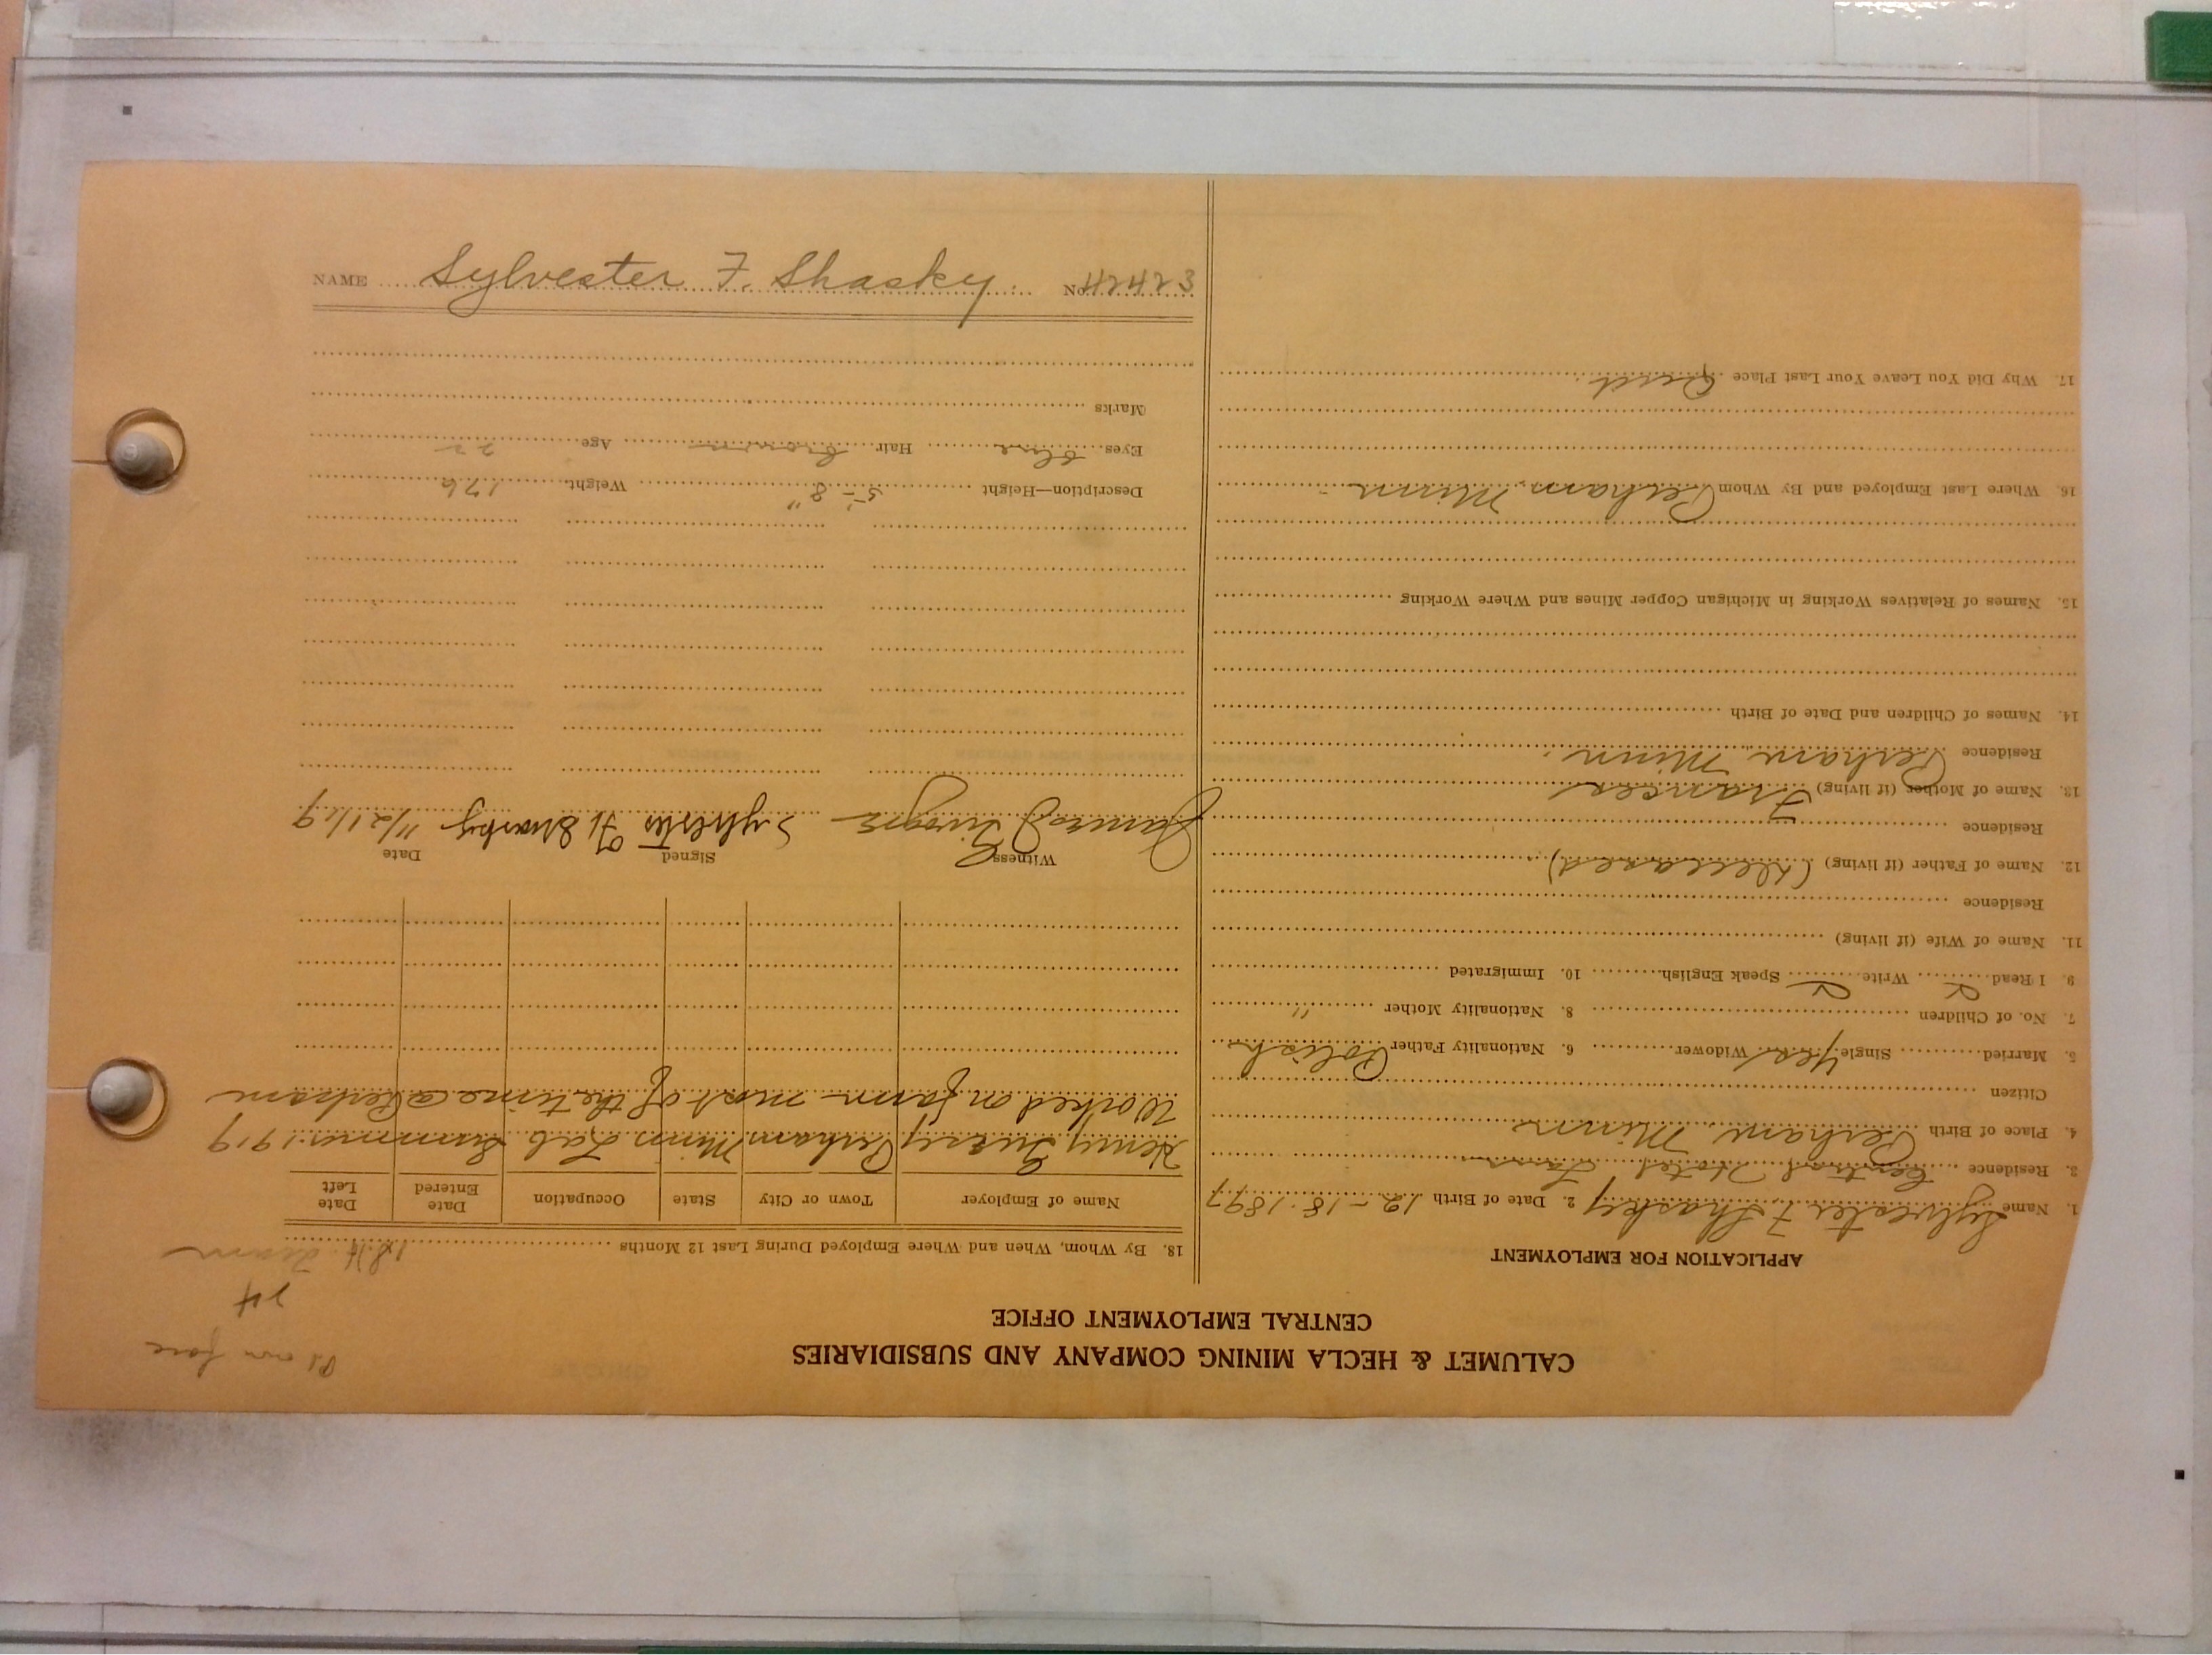 CALUMET & HECLA MINING COMPANY AND SUBSIDIARIES
CENTRAL EMPLOYMENT OFFICE
APPLICATION FOR EMPLOYMENT
1. Name Sylvester F. Shasky 2. Date of Birth 12-18-1897
3. Residence Central Hotel
4. Place of Birth Perham Minn
Citizen
5. Married Single Yes Widower 6. Nationality Father Polish
7. No. of Children 8. Nationality Mother "
9. I Read Write Speak English 10. Immigrated
11. Name of Wife (if living)
Residence
12. Name of Father (if living) (Deceased)
Residence
13. Name of Mother (if living) Frances
Residence Perham Minn.
14. Names of Children and Date of Birth
15. Names of Relatives Working in Michigan Copper Mines and Where Working
16. Where Last Employed and By Whom Perham, Minn
17. Why Did You Leave Your Last Place Quit.
own fare
18. By Whom, When and Where Employed During Last 12 Months
Name of Employer Town or City State Occupation Date Entered Date Left
Henry Perham Minn Lab Summer 1919
Worked on farm most of the time @ Perham
Witness Signed Date
James Sylvester F. Shasky 11/21/19
Description—Height 5'-8" Weight 176
Eyes blue Hair brown Age 22
Marks
NAME Sylvester F. Shasky. No. 42423